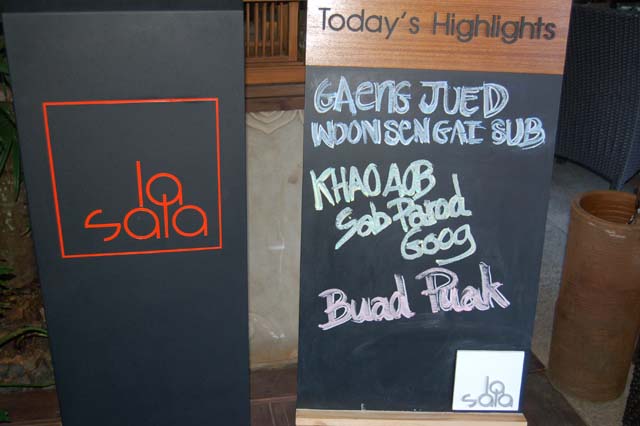 la
sala
Today's Highlights
GAENG JUED
WOONSEN GAI SUB
KHAO AOB
Sab Parod
Goog
Buad Puak
la
sala